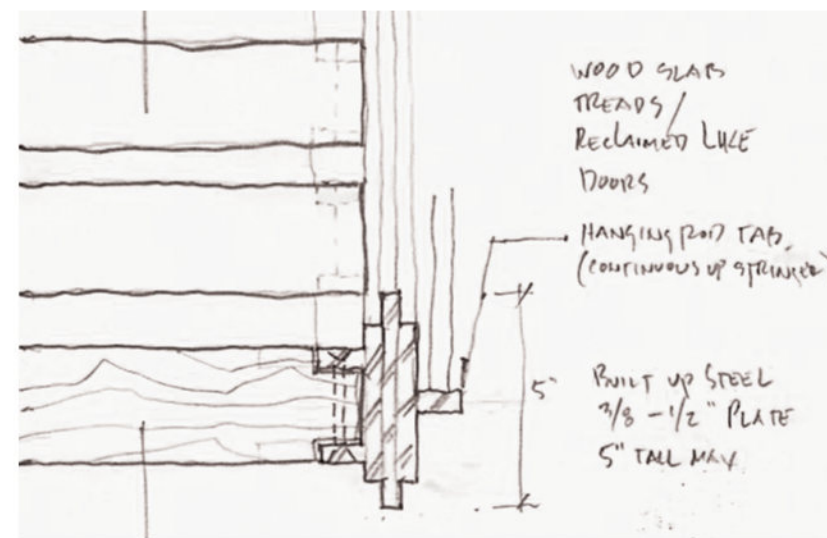 WOOD SLAB
TREADS/
RECLAIMED LIKE
DOORS
HANGING ROD TAB
(CONTINUOUS UP STRINGER)
5"
BUILT UP STEEL
3/8 - 1/2" PLATE
5" TALL MAX